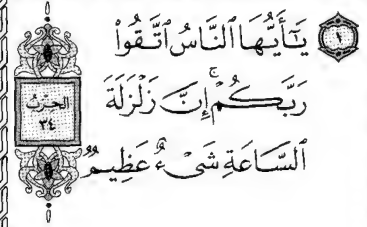 ١ يَـٰٓأَيُّهَا ٱلنَّاسُ ٱتَّقُوا۟
رَبَّكُمْ ۚ إِنَّ زَلْزَلَةَ
ٱلسَّاعَةِ شَىْءٌ عَظِيمٌ
الحِزْبُ
٣٤